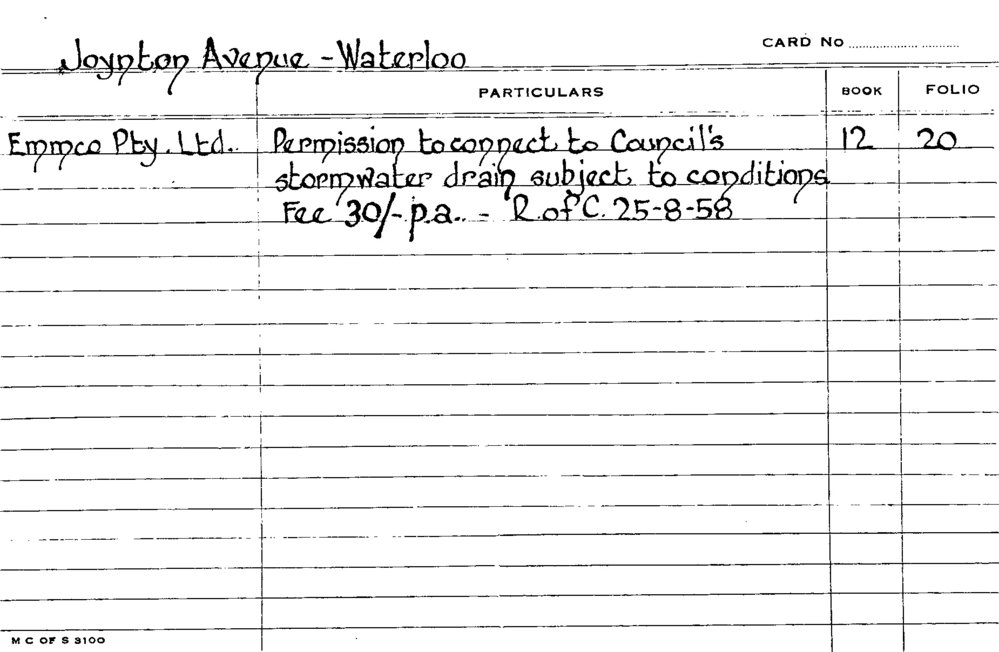 CARD No
Joynton Avenue - Waterloo
PARTICULARS BOOK FOLIO
Emmco Pty. Ltd. Permission to connect to Council's 12 20
stormwater drain subject to conditions
Fee 30/- p.a. - R. of C. 25-8-58
M C OF S 3100